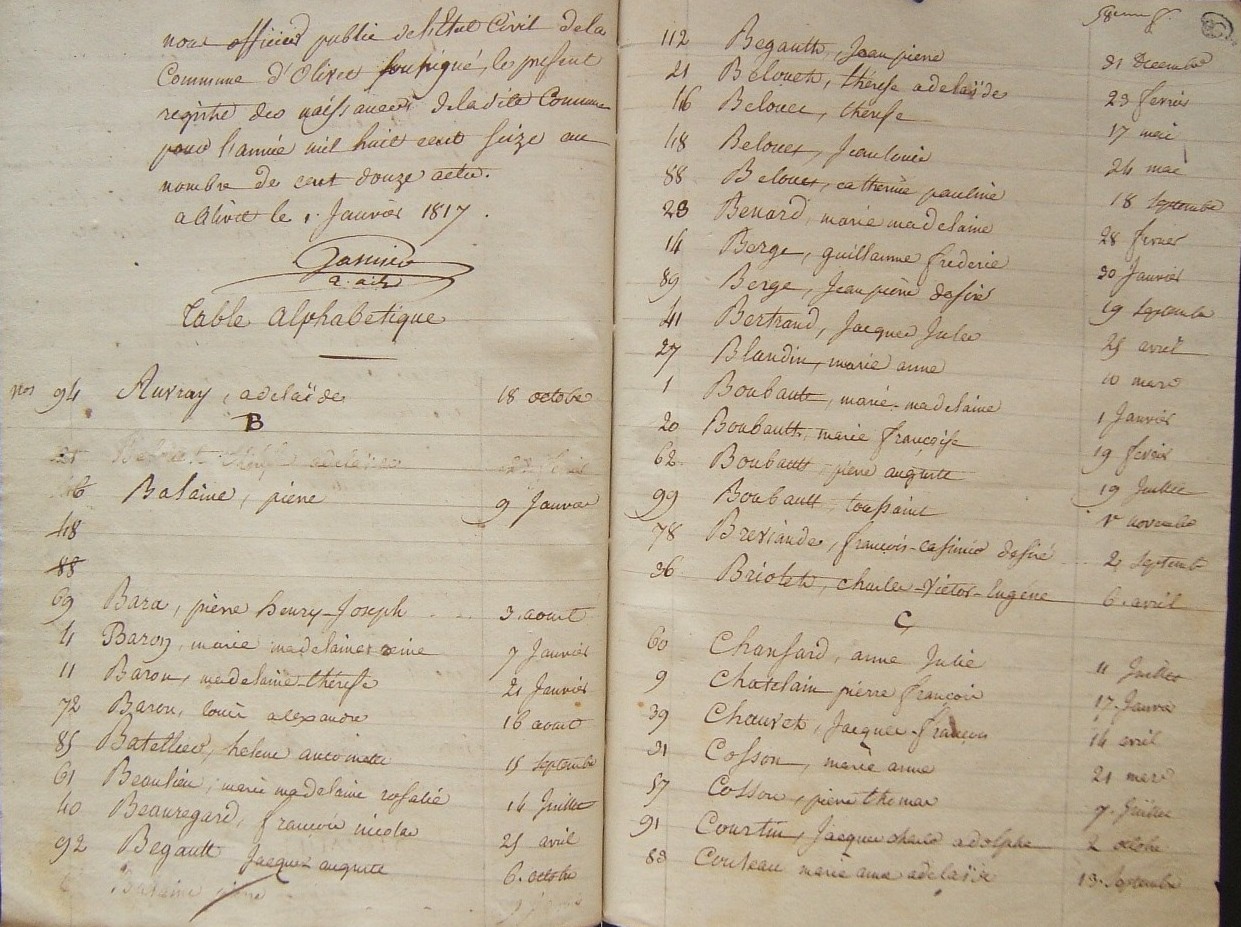 nous officier public de l'Etat Civil de la
Commune d'Olivet soussigné, le present
registre des naissances de la dite Commune
pour l'année mil huit cent seize au
nombre de cent douze actes.
a Olivet le 1. Janvier 1817.
Table Alphabétique
nos 94 Auvray, adelaïde 18 octobre
B
6 Balaine, pierre 9 Janvier
48
88
69 Bara, pierre henry-Joseph 3. aout
4 Baron, marie madelaine reine 7 Janvier
11 Baron, madelaine-thérese 21 Janvier
72 Baron, louis alexandre 16 aout
85 Batellier, helene antoinette 15 septembre
61 Beaulieu, marie madelaine rosalie 14 Juillet
40 Beauregard, francois nicolas 25 avril
92 Begault Jacques auguste 6. octobre
Balaine pierre
112 Begault, Jean pierre 31 Decembre
21 Belouet, thérese adelaïde 23 fevrier
46 Belouet, therese 17 mai
48 Belouet, Jean louis 24 mai
88 Belouet, catherine pauline 18 septembre
23 Benard, marie madelaine 28 fevrier
14 Berge, guillaume frederic 30 Janvier
89 Berge, Jean pierre desiré 19 septembre
41 Bertrand, Jacques Jules 25 avril
27 Blandin, marie anne 10 mars
1 Boubault, marie-madelaine 1 Janvier
20 Boubault, marie françoise 19 fevrier
62 Boubault pierre auguste 19 Juillet
99 Boubault, toussaint 1er novembre
78 Breviande, françois-casimir desiré 2 septembre
36 Briolet, charles-Victor-Eugene 6. avril
C
60 Chansard, anne Julie 11 Juillet
9 Chatelain pierre francois 17. Janvier
39 Chauvet, Jacques-françois 14 avril
31 Cosson, marie anne 21 mars
57 Cosson, pierre thomas 7. Juillet
91 Courtin, Jacques charles adolphe 2 octobre
83 Couteau marie anne adelaïde 13. Septembre